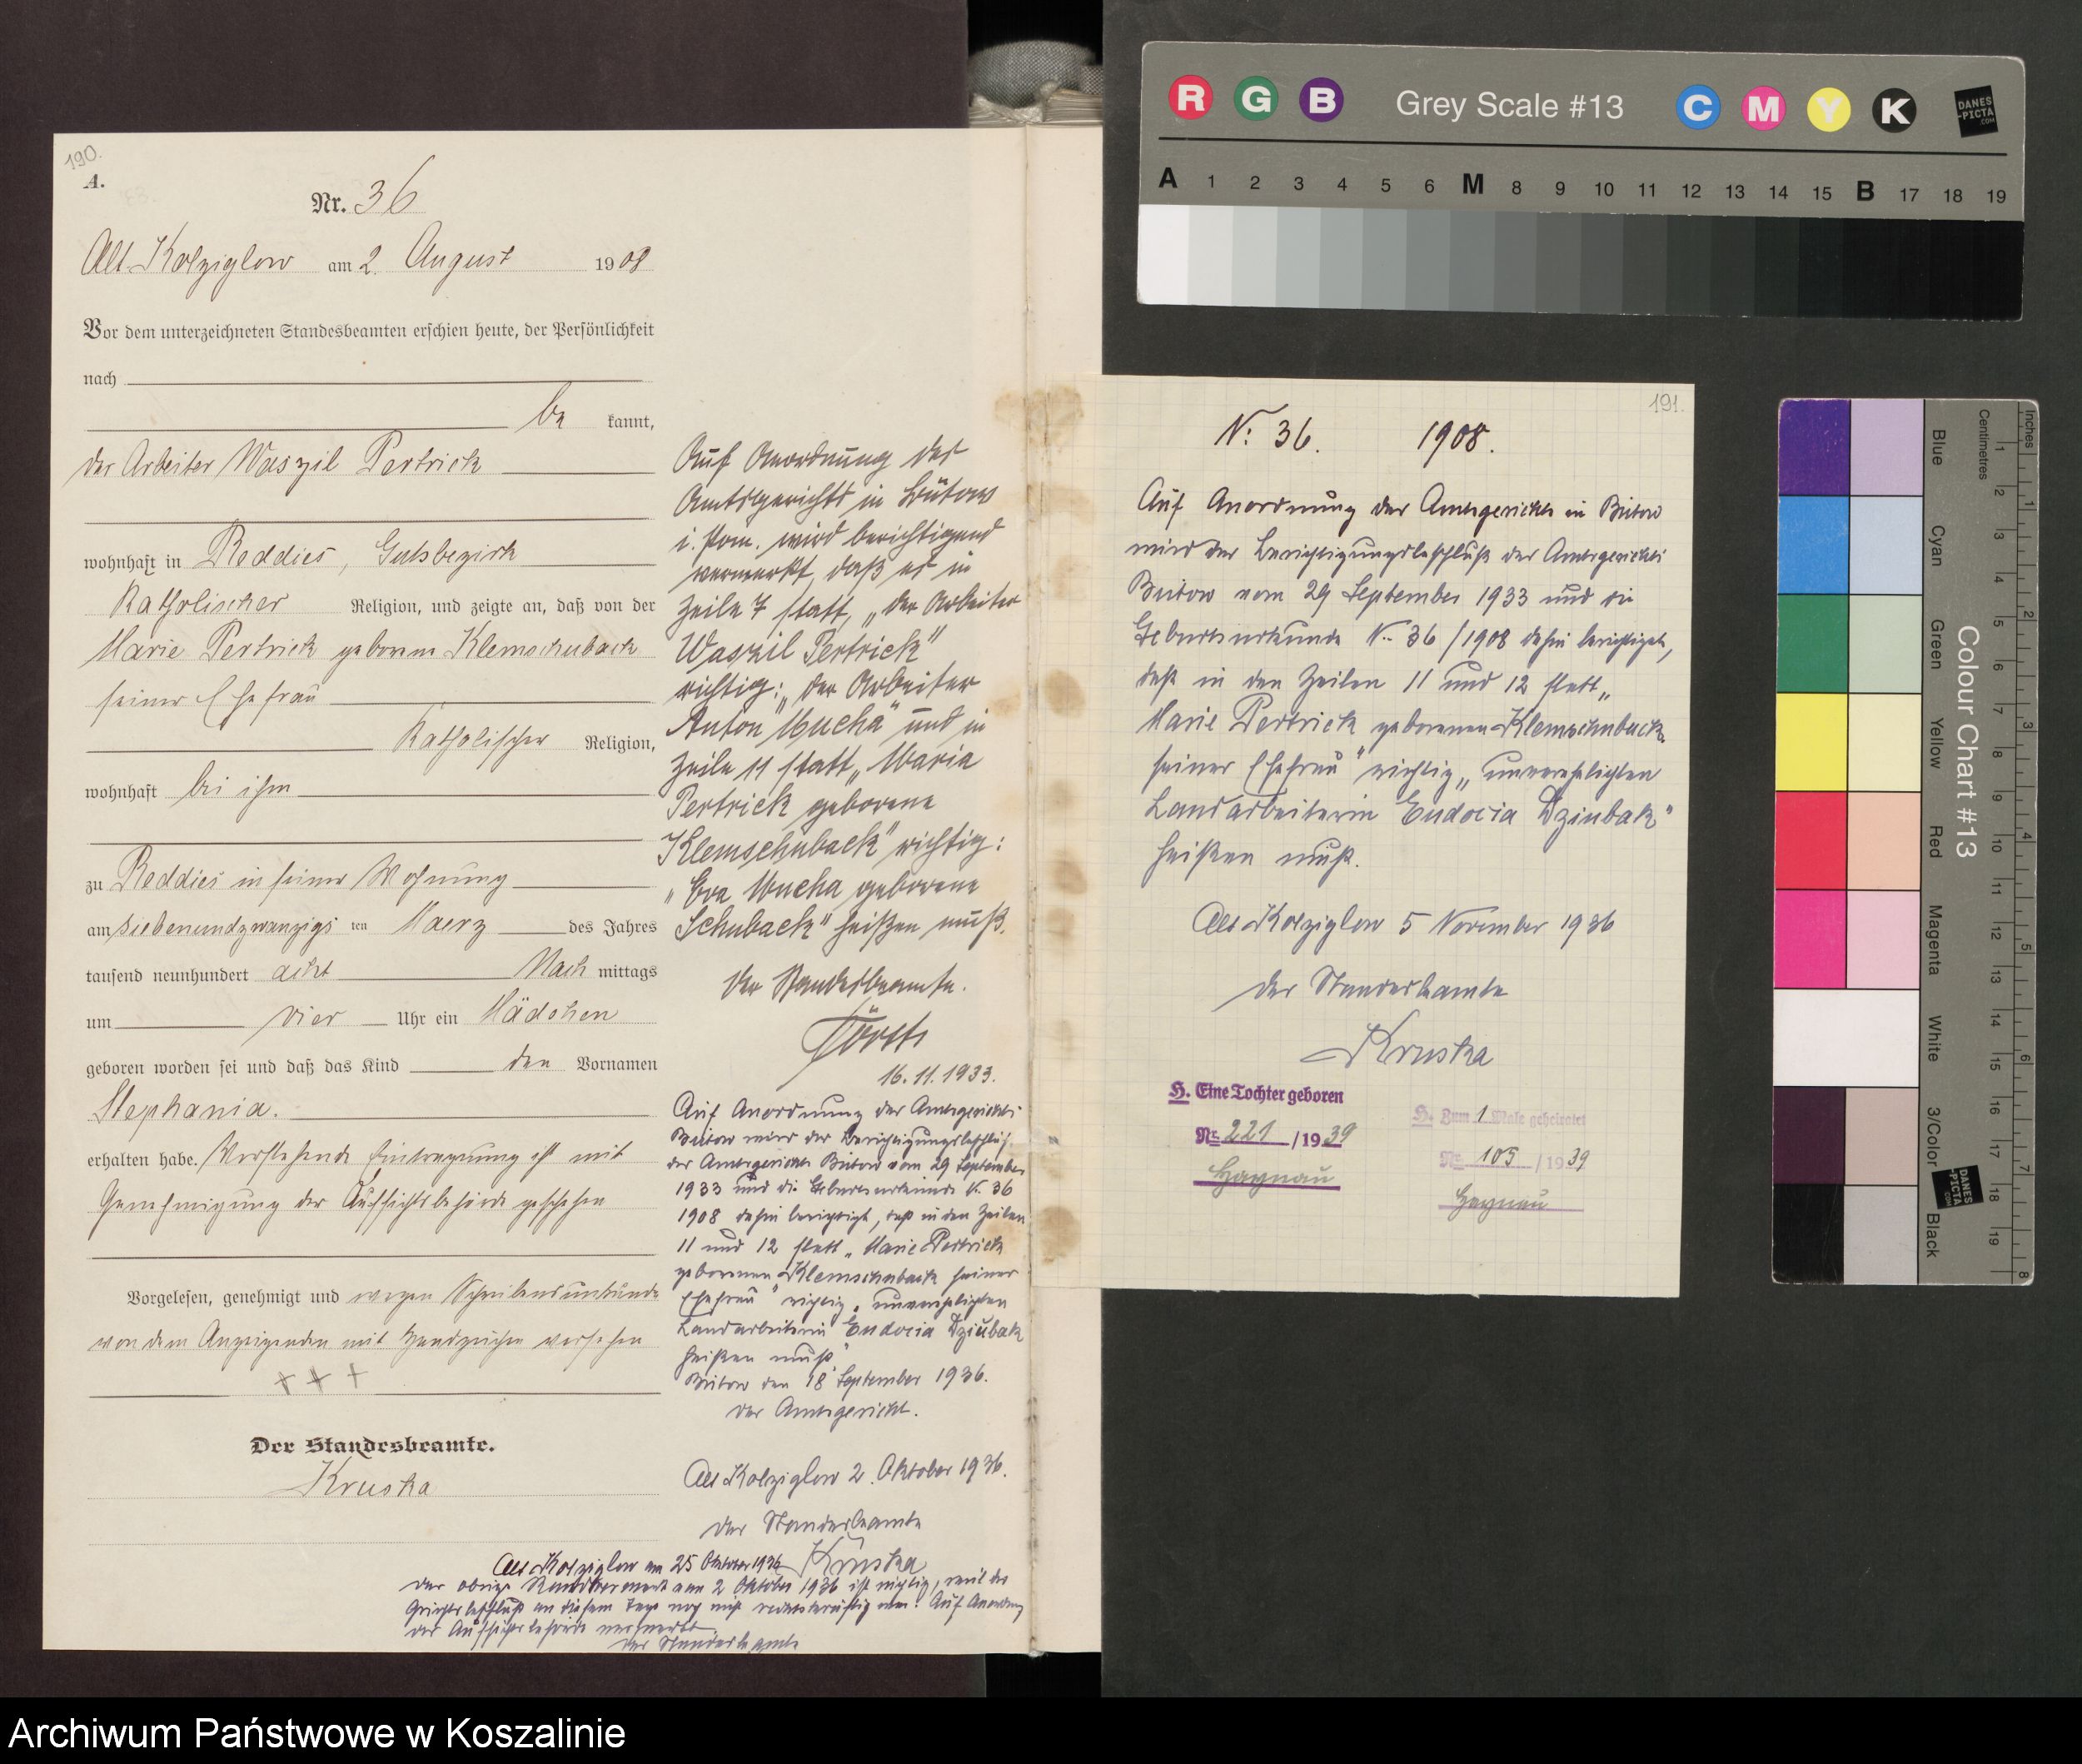 190.
A.
Nr. 36
Alt-Kolziglow am 2. August 1908
Vor dem unterzeichneten Standesbeamten erschien heute, der Persönlichkeit
nach
be kannt,
der Arbeiter Waszil Pertrick
wohnhaft in Reddies, Gutsbezirk
Katholischer Religion, und zeigte an, daß von der
Marie Pertrick geborenen Klemschuback
seiner Ehefrau
Katholischer Religion,
wohnhaft bei ihm
zu Reddies in seiner Wohnung
am siebenundzwanzigsten Maerz des Jahres
tausend neunhundert acht Nach mittags
um vier Uhr ein Mädchen
geboren worden sei und daß das Kind den Vornamen
Stephania.
erhalten habe. Vorstehende Eintragung ist mit
Genehmigung der Aufsichtsbehörde geschehen
Vorgelesen, genehmigt und wegen Schreibensunkunde
von dem Anzeigenden mit Handzeichen versehen
+++
Der Standesbeamte.
Kruska
Auf Anordnung des
Amtsgerichts in Bütow
i. Pom. wird berichtigend
vermerkt, daß es in
Zeile 7 statt „der Arbeiter
Waszil Pertrick"
richtig: „der Arbeiter
Anton Mucha" und in
Zeile 11 statt „Maria
Pertrick geborene
Klemschuback" richtig:
„Eva Mucha geborene
Schuback" heißen muß.
Der Standesbeamte.
16.11.1933.
Auf Anordnung des Amtsgerichts
Bütow wird der Berichtigungsbeschluß
des Amtsgerichts Bütow vom 29 September
1933 und die Geburtsurkunde N. 36
1908 dahin berichtigt, daß in den Zeilen
11 und 12 statt „Marie Pertrick
geborenen Klemschuback seiner
Ehefrau" richtig „unverehelichten
Landarbeiterin Eudocia Dziubak
heißen muß."
Bütow den 18 September 1936.
das Amtsgericht.
Alt Kolziglow 2. Oktober 1936.
der Standesbeamte
Kruska
Alt Kolziglow am 25 Oktober 1936
Der obige Randvermerk vom 2 Oktober 1936 ist nichtig, weil der
Gerichtsbeschluß an diesem Tage noch nicht rechtskräftig war. Auf Anordnung
der Aufsichtsbehörde vermerkt
der Standesbeamte
191.
N: 36. 1908.
Auf Anordnung des Amtsgerichts in Bütow
wird der Berichtigungsbeschluß des Amtsgerichts
Bütow vom 29 September 1933 und die
Geburtsurkunde N: 36/1908 dahin berichtigt,
daß in den Zeilen 11 und 12 statt „
Marie Pertrick geborenen Klemschuback
seiner Ehefrau" richtig „unverehelichten
Landarbeiterin Eudocia Dziubak"
heißen muß.
Alt Kolziglow 5 November 1936
der Standesbeamte
Kruska
H. Eine Tochter geboren
Nr. 221 /1939
Haynau
H. Zum 1 Male geheiratet
Nr. 105 /1939
Haynau
R G B Grey Scale #13 C M Y K
DANES-PICTA.COM
A 1 2 3 4 5 6 M 8 9 10 11 12 13 14 15 B 17 18 19
Colour Chart #13
Blue Cyan Green Yellow Red Magenta White 3/Color Black
Centimetres
1 2 3 4 5 6 7 8 9 10 11 12 13 14 15 16 17 18 19
Inches
1 2 3 4 5 6 7 8
DANES-PICTA.COM
Archiwum Państwowe w Koszalinie